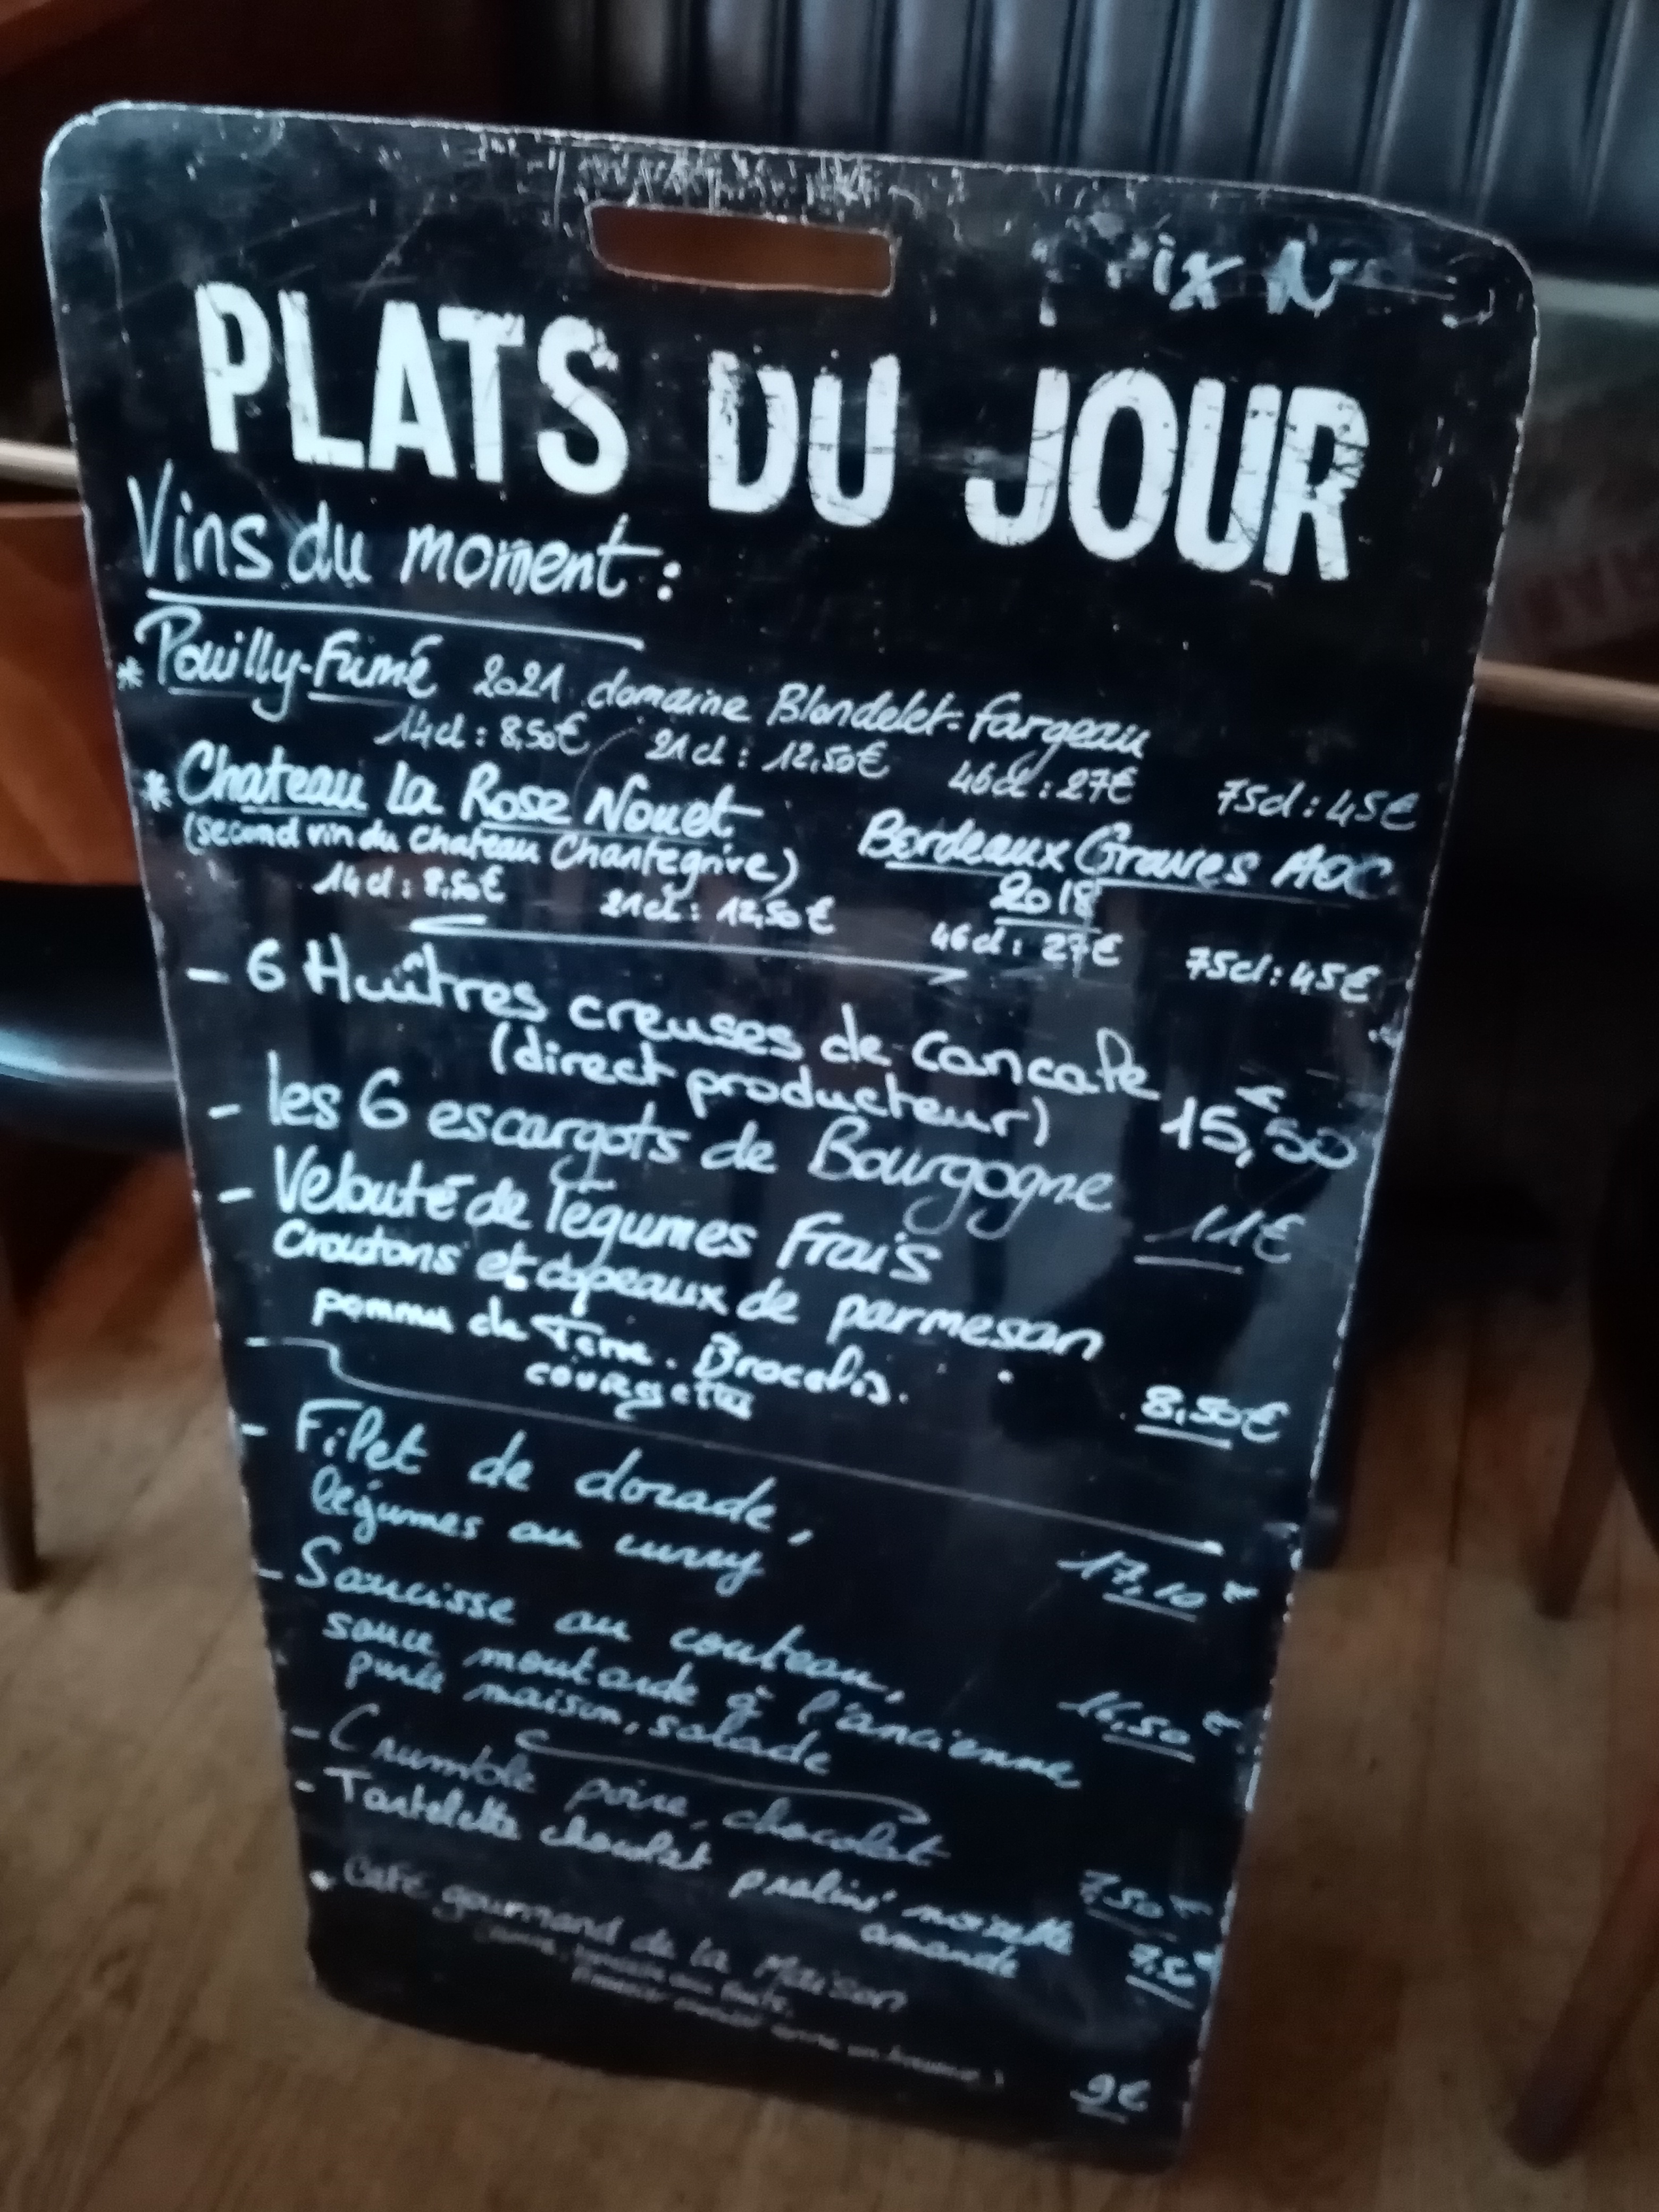 PLATS DU JOUR
Vins du moment :
* Pouilly-Fumé 2021 domaine Blondelet-Fargeau
14cl : 8,50€ 21cl : 12,50€ 46cl : 27€ 75cl : 45€
* Chateau la Rose Nouet Bordeaux Graves AOC
(second vin du Chateau Chantegrive) 2018
14cl : 8,50€ 21cl : 12,50€ 46cl : 27€ 75cl : 45€
- 6 Huîtres creuses de Cancale
(direct producteur) 15,50€
- les 6 escargots de Bourgogne 11€
- Velouté de légumes Frais
Croutons et copeaux de parmesan
pomme de Terre. Brocolis.
courgettes 8,50€
- Filet de dorade,
légumes au curry 17,10€
- Saucisse au couteau,
sauce moutarde à l'ancienne 16,50€
purée maison, salade
- Crumble poire, chocolat 7,50€
- Tartelette chocolat praliné noisette
amande 7,50€
* Café gourmand de la Maison
9€